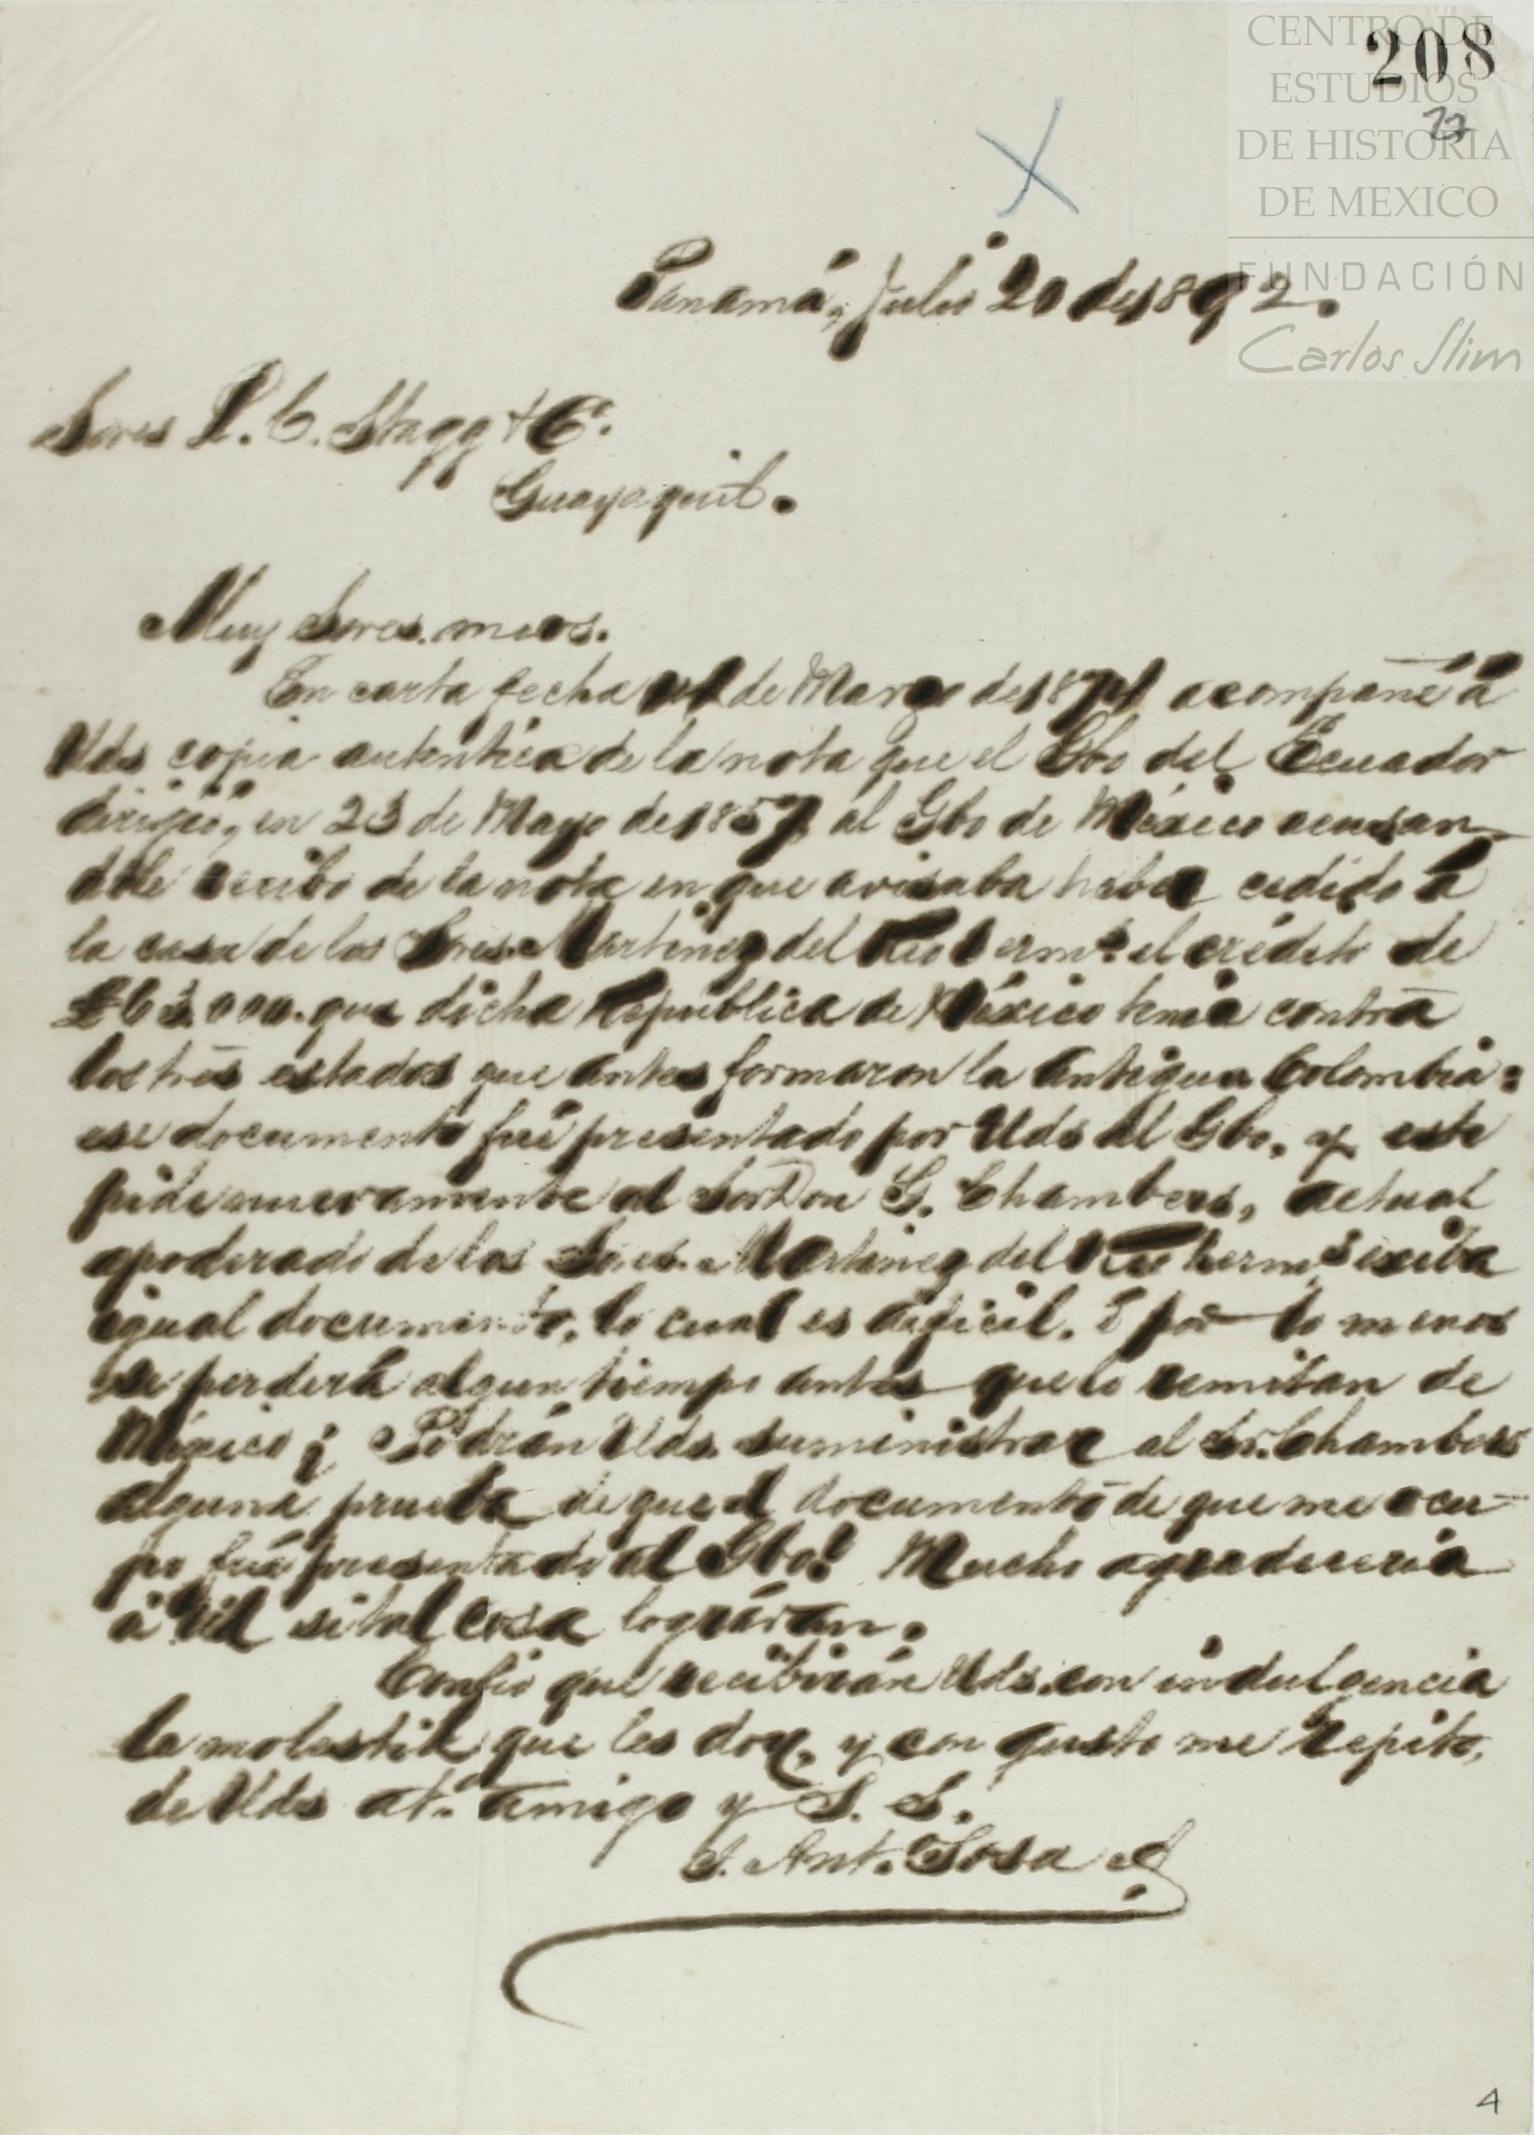 CENTRO DE
ESTUDIOS
DE HISTORIA
DE MEXICO
FUNDACIÓN
Carlos Slim
208
77
Panamá, Julio 20 de 1892.
Sores P. C. Stagg + Cª.
Guayaquil.
Muy Sores. mios.
En carta fecha de Marzo de acompañé á
Uds copia autentica de la nota que el Gbo del Ecuador
dirigió, en 23 de Mayo de 1857, al Gbo de México acusan-
dole recibo de la nota en que avisaba haber cedido á
la casa de los Sores. Martinez del Rio hermˢ el crédito de
£63.000. que dicha Republica de México tenia contra
los tres estados que antes formaron la antigua Colombia:
ese documento fué presentado por Uds al Gbo. y este
pide nuevamente al Sor Don G. Chambers, actual
apoderado de los Sores. Martinez del Rio hermˢ exiba
igual documento, lo cual es dificil. I por lo menos
se perderá algun tiempo antes que lo remitan de
México; Podrán Uds. suministrar al Sr. Chambers
alguna prueba de que el documento de que me ocu-
po fué presentado al Gbo? Mucho agradeceria
á Ud si tal cosa lográran.
Confio que recibirán Uds. con indulgencia
la molestia que les doy, y con gusto me repito,
de Uds atº. amigo y S. S.
J. Ant. Sosa
4